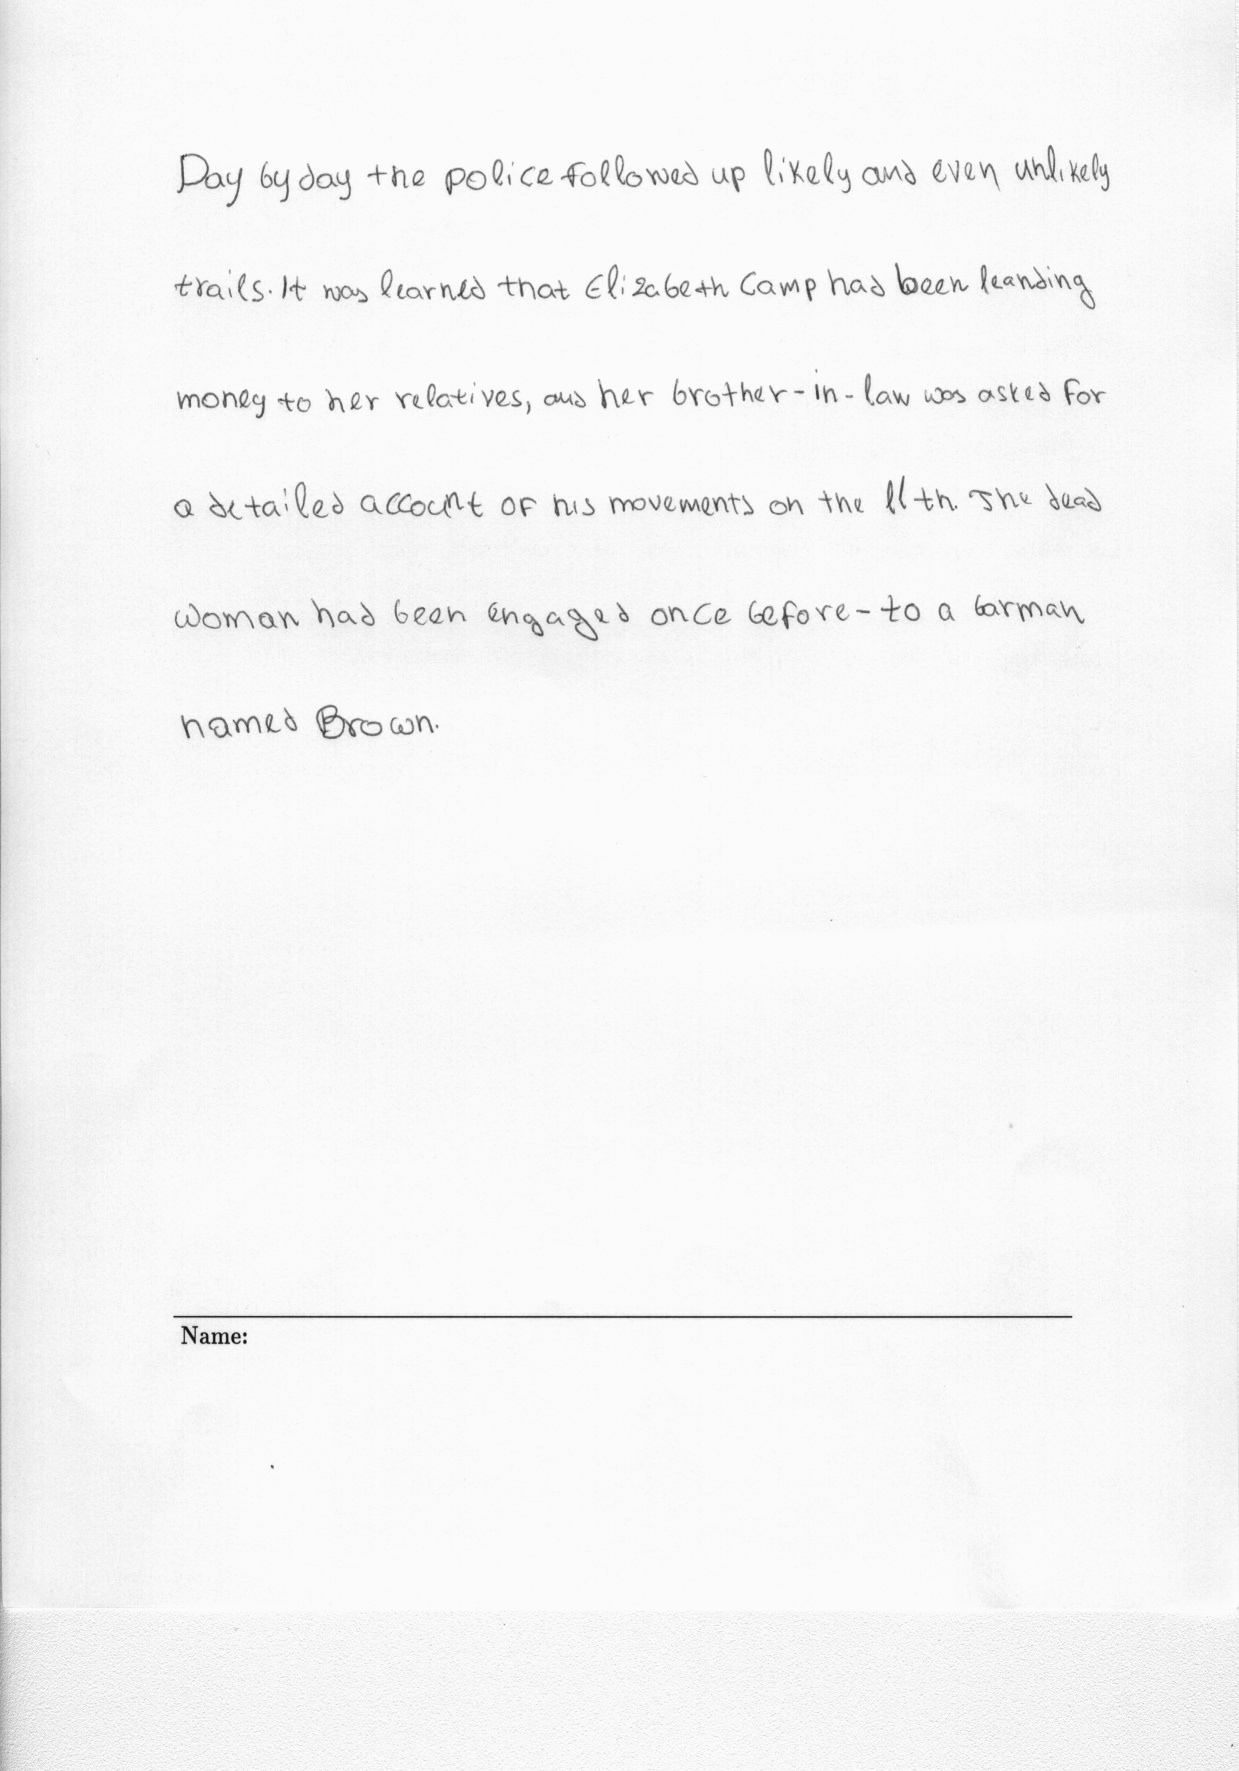 Day by day the police followed up likely and even unlikely
trails. It was learned that Elizabeth Camp had been leanding
money to her relatives, and her brother-in-law was asked for
a detailed account of his movements on the 11th. The dead
woman had been engaged once before - to a barman
named Brown.
Name: